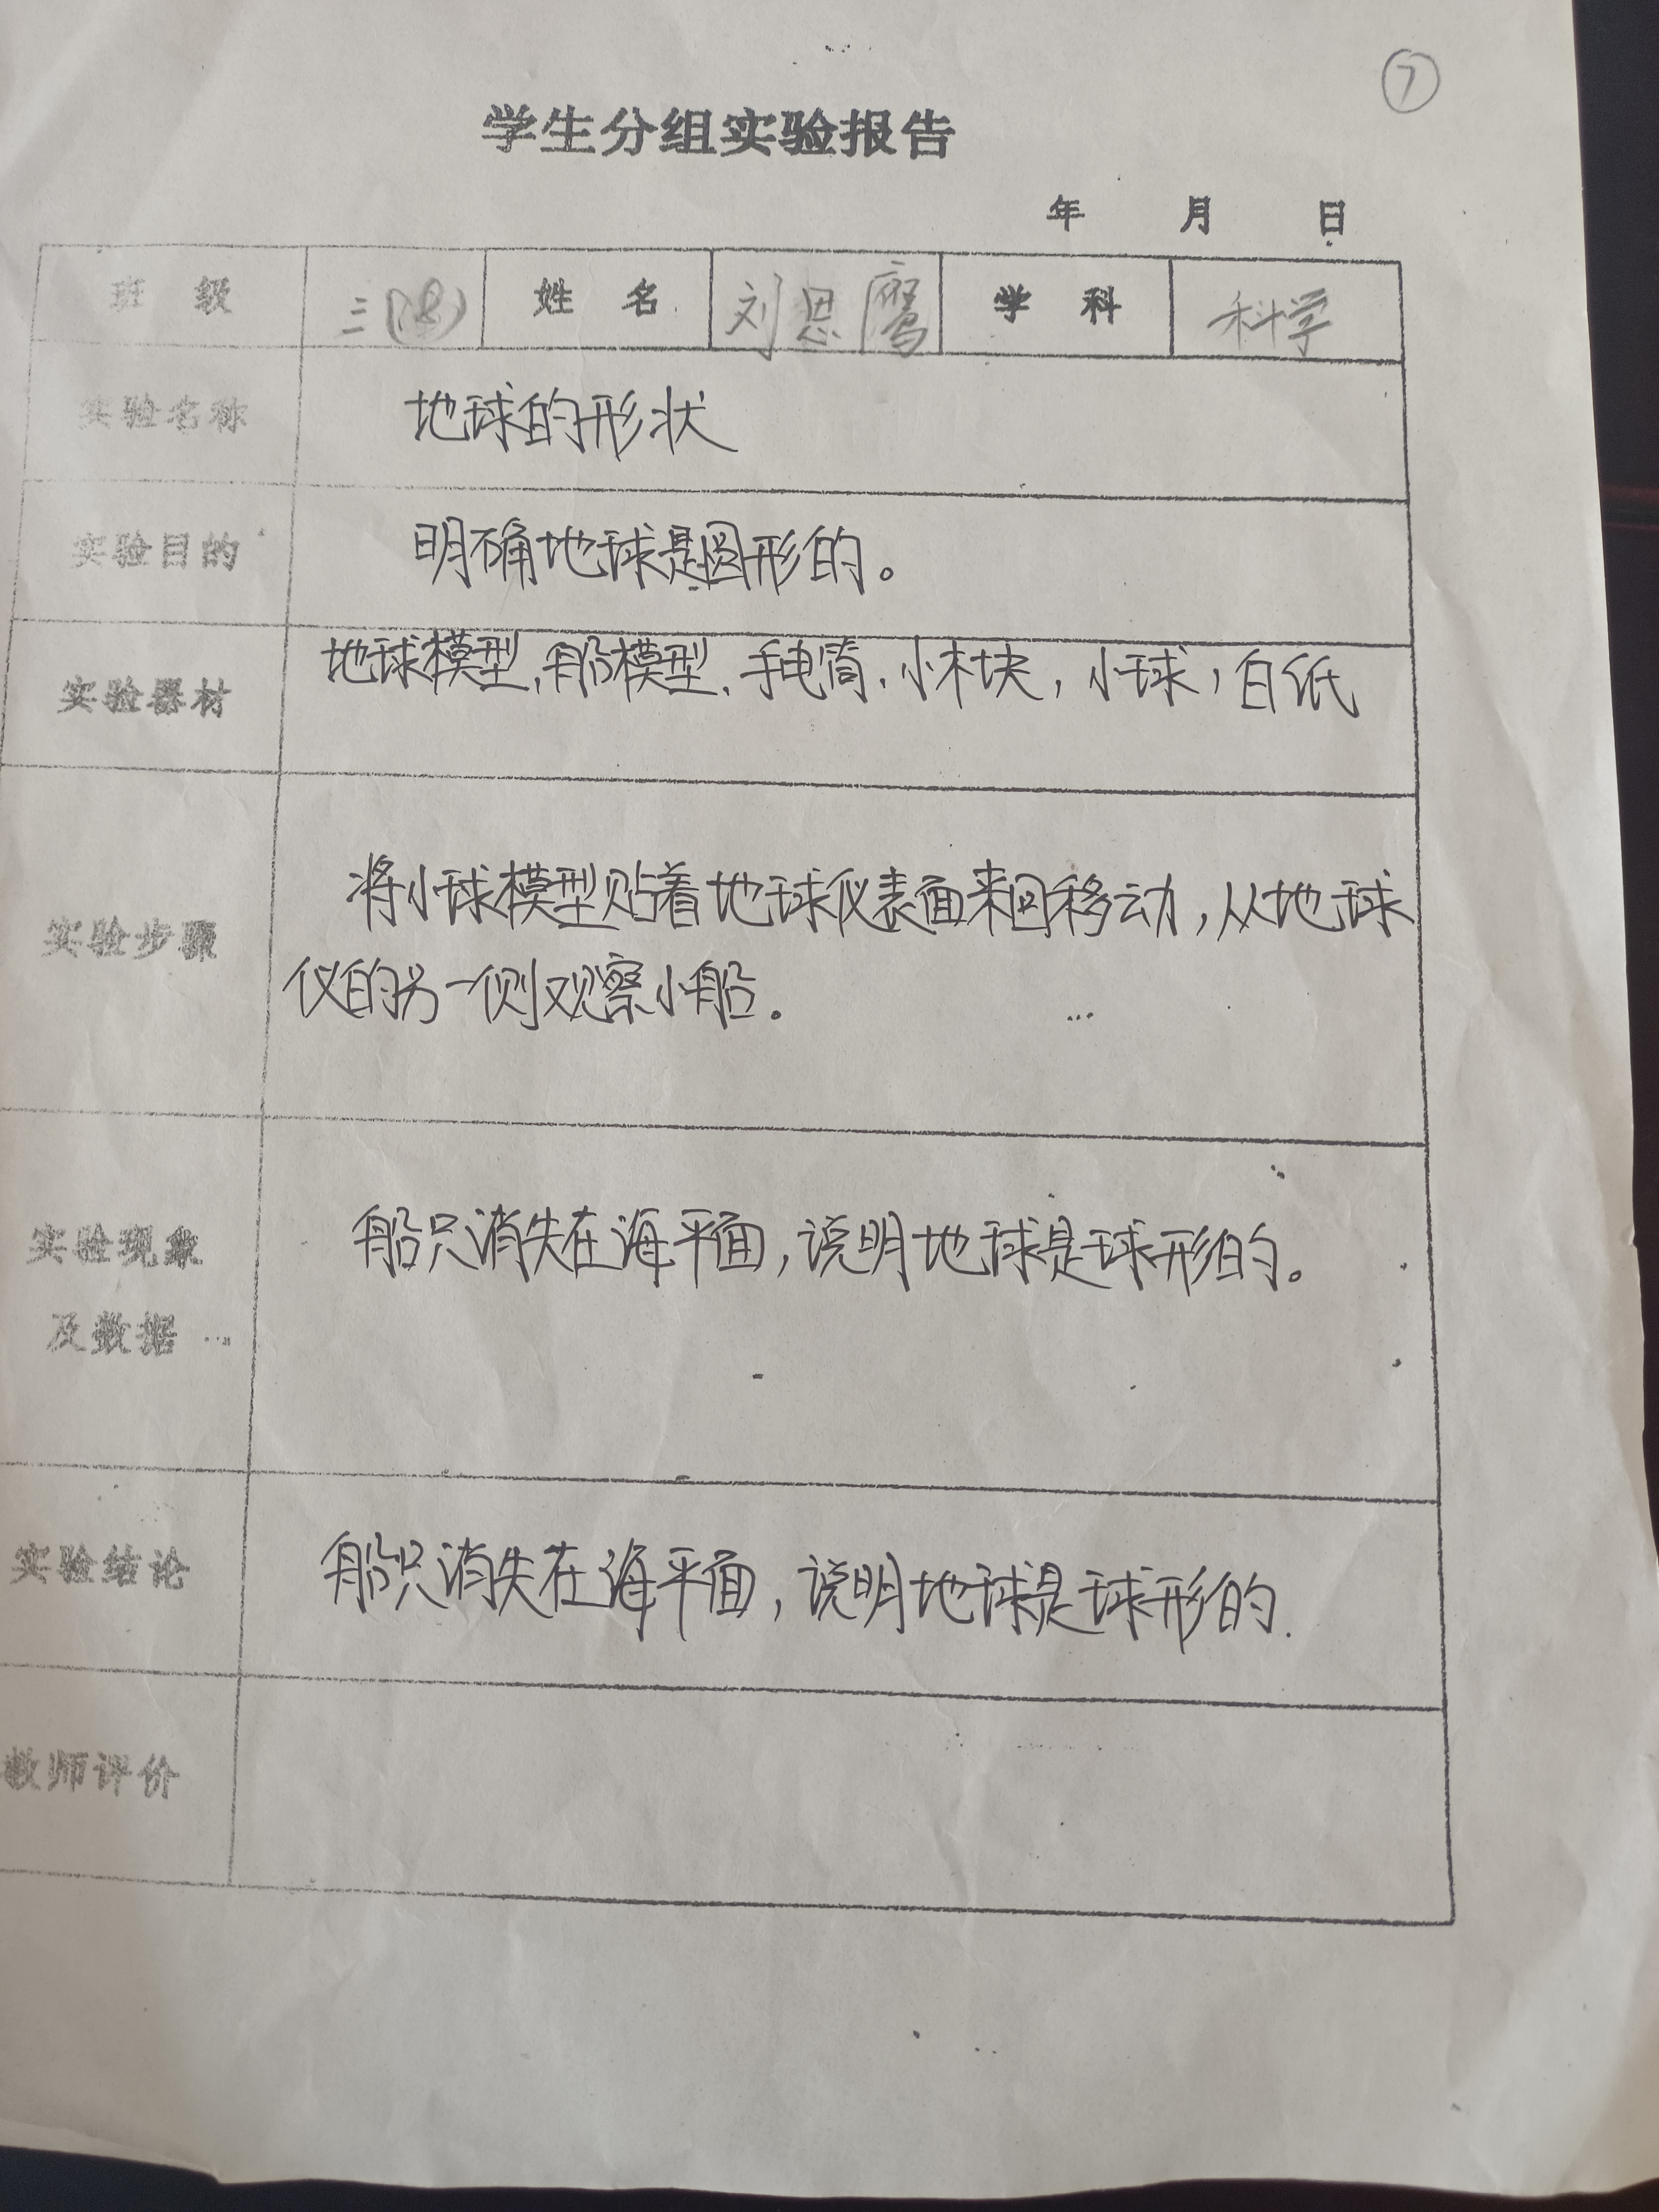 ⑦
学生分组实验报告
年 月 日
班 级 三(8) 姓 名 刘恩鹰 学 科 科学
实验名称 地球的形状
实验目的 明确地球是圆形的。
实验器材 地球模型,船模型,手电筒,小木块,小球,白纸
实验步骤 将小球模型贴着地球仪表面来回移动,从地球
仪的另一侧观察小船。
实验现象 船只消失在海平面,说明地球是球形的。
及数据
实验结论 船只消失在海平面,说明地球是球形的.
教师评价